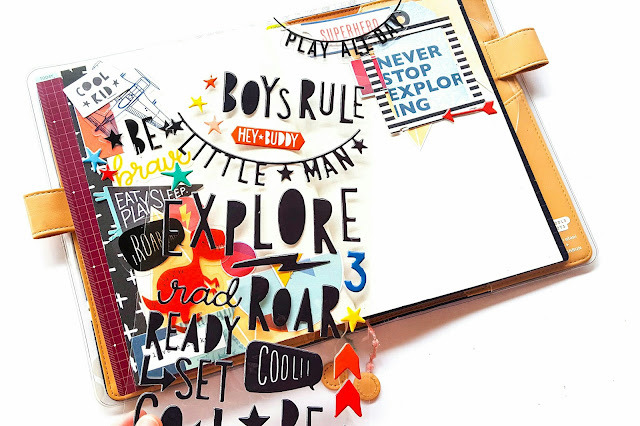 SUPERHERO
PLAY ALL DAY
COOL
KID
BOYS RULE
NEVER
STOP
EXPLOR
ING
HEY★BUDDY
BE
brave
LITTLE★MAN★
EAT
PLAY SLEEP
EXPLORE
ROAR
3
rad ROAR
READY
SET
COOL!!